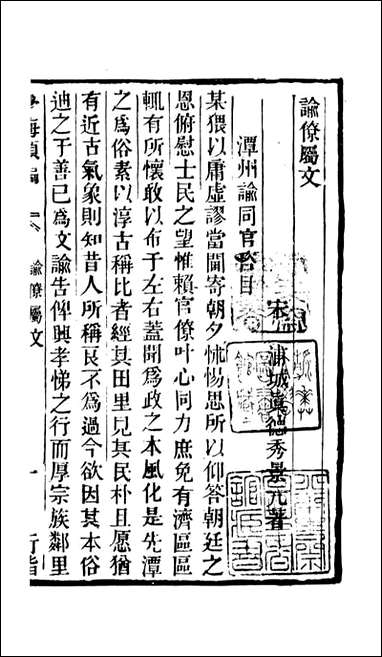 諭僚屬文
宋 浦城真德秀景元著
潭州諭同官咨目
某猥以庸虛謬當閫寄朝夕怵惕思所以仰答朝廷之
恩俯慰士民之望惟賴官僚叶心同力庶免有濟區區
輒有所懷敢以布于左右蓋聞為政之本風化是先潭
之為俗素以淳古稱比者經其田里見其民朴且愿猶
有近古氣象則知昔人所稱良不為過今欲因其本俗
迪之于善已為文諭告俾興孝悌之行而厚宗族鄰里
學海類編 諭僚屬文 一 行詣